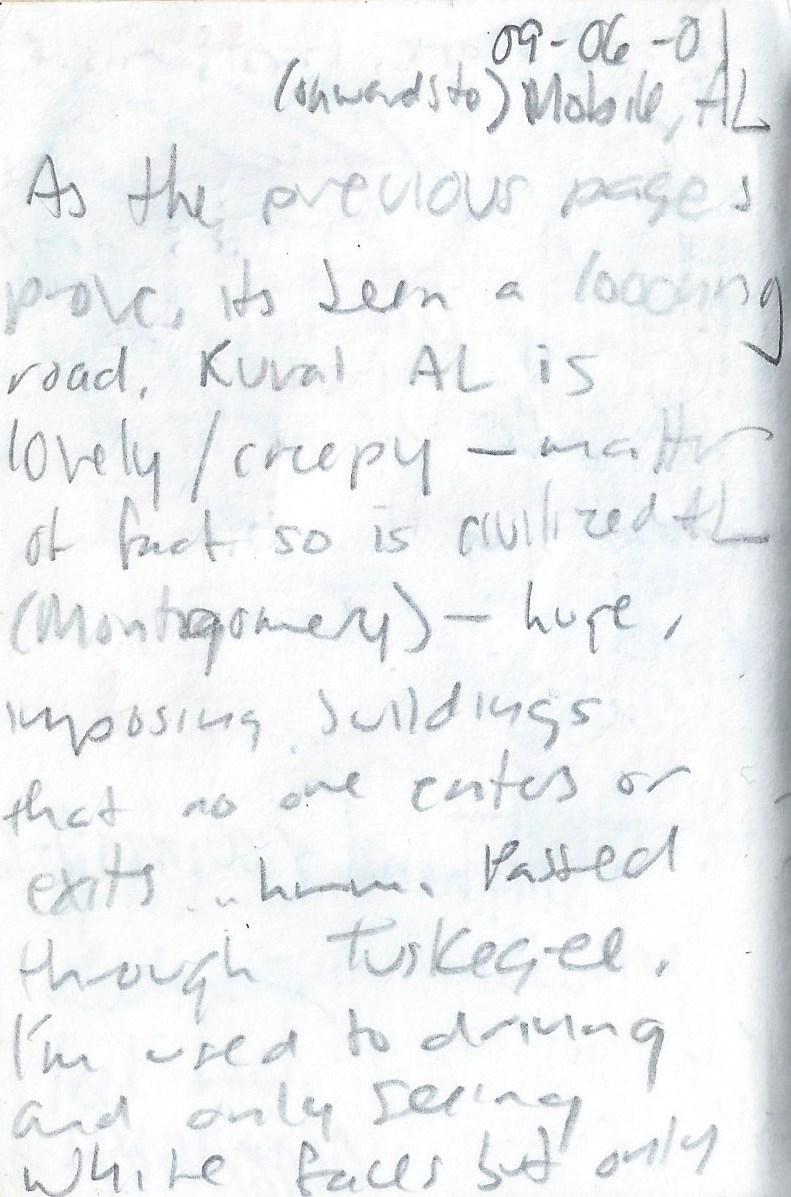 09-06-01
(onwards to) Mobile, AL
As the previous pages
prove, its been a loooong
road. Rural AL is
lovely/creepy — matter
of fact so is civilized AL
(Montgomery) — huge,
imposing buildings
that no one enters or
exits ... hmm. Passed
through Tuskegee.
I'm used to driving
and only seeing
white faces but only